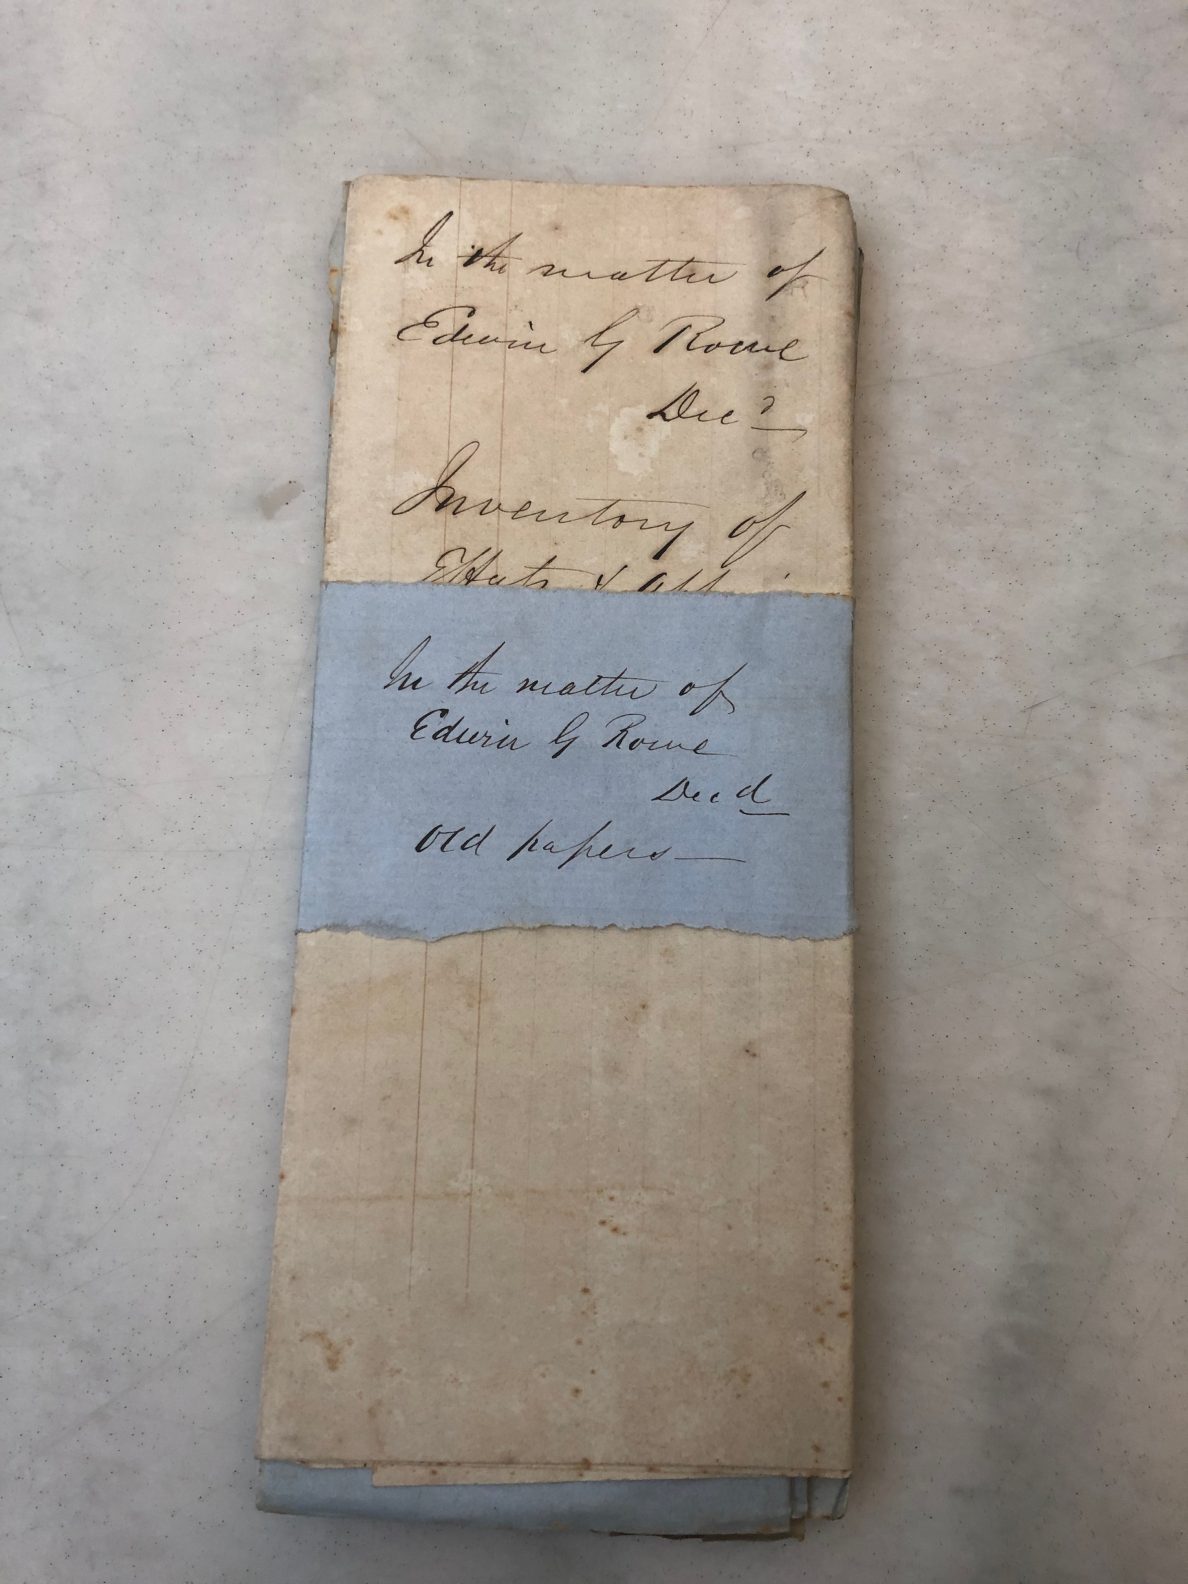 In the matter of
Edwin G Rowe
Decd
Inventory of
Effects &
In the matter of
Edwin G Rowe
Decd
Old papers—